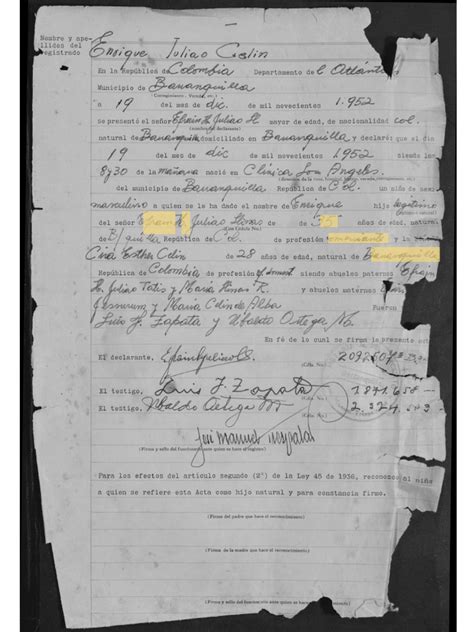 Nombre y ape-
llidos del
registrado
Enrique Juliao Celin
En la República de Colombia Departamento de l Atlántic
Municipio de Barranquilla
a 19 del mes de dic. de mil novecientos 1.952
se presentó el señor Efraín H. Juliao H. mayor de edad, de nacionalidad col.
natural de Barranquilla domiciliado en Barranquilla y declaró: que el día
19 del mes de dic de mil novecientos 1952 siendo las
8y30 de la mañana nació en Clínica Los Angeles
del municipio de Barranquilla República de Col. un niño de sexo
masculino a quien se le ha dado el nombre de Enrique hijo legítimo
del señor Efraín H. Juliao de 35 años de edad, natural
de B/quilla República de Col. de profesión comerciante y la
Esther Celin de 28 años de edad, natural de Barranquilla
República de Colombia de profesión siendo abuelos paternos Efraín
H. Juliao y María R. y abuelos maternos
y María Celin de Alba Fueron
Luis F. Zapata y Ubaldo Ortega M.
En fé de lo cual se firma la presente acta
El declarante,
El testigo, Luis F. Zapata
El testigo, Ubaldo Ortega M
(Firma y sello del funcionario ante quien se hace el registro)
Para los efectos del artículo segundo (2º) de la Ley 45 de 1936, reconozco al niño
a quien se refiere esta Acta como hijo natural y para constancia firmo.
(Firma del padre que hace el reconocimiento)
(Firma de la madre que hace el reconocimiento)
(Firma y sello del funcionario ante quien se hace el reconocimiento)